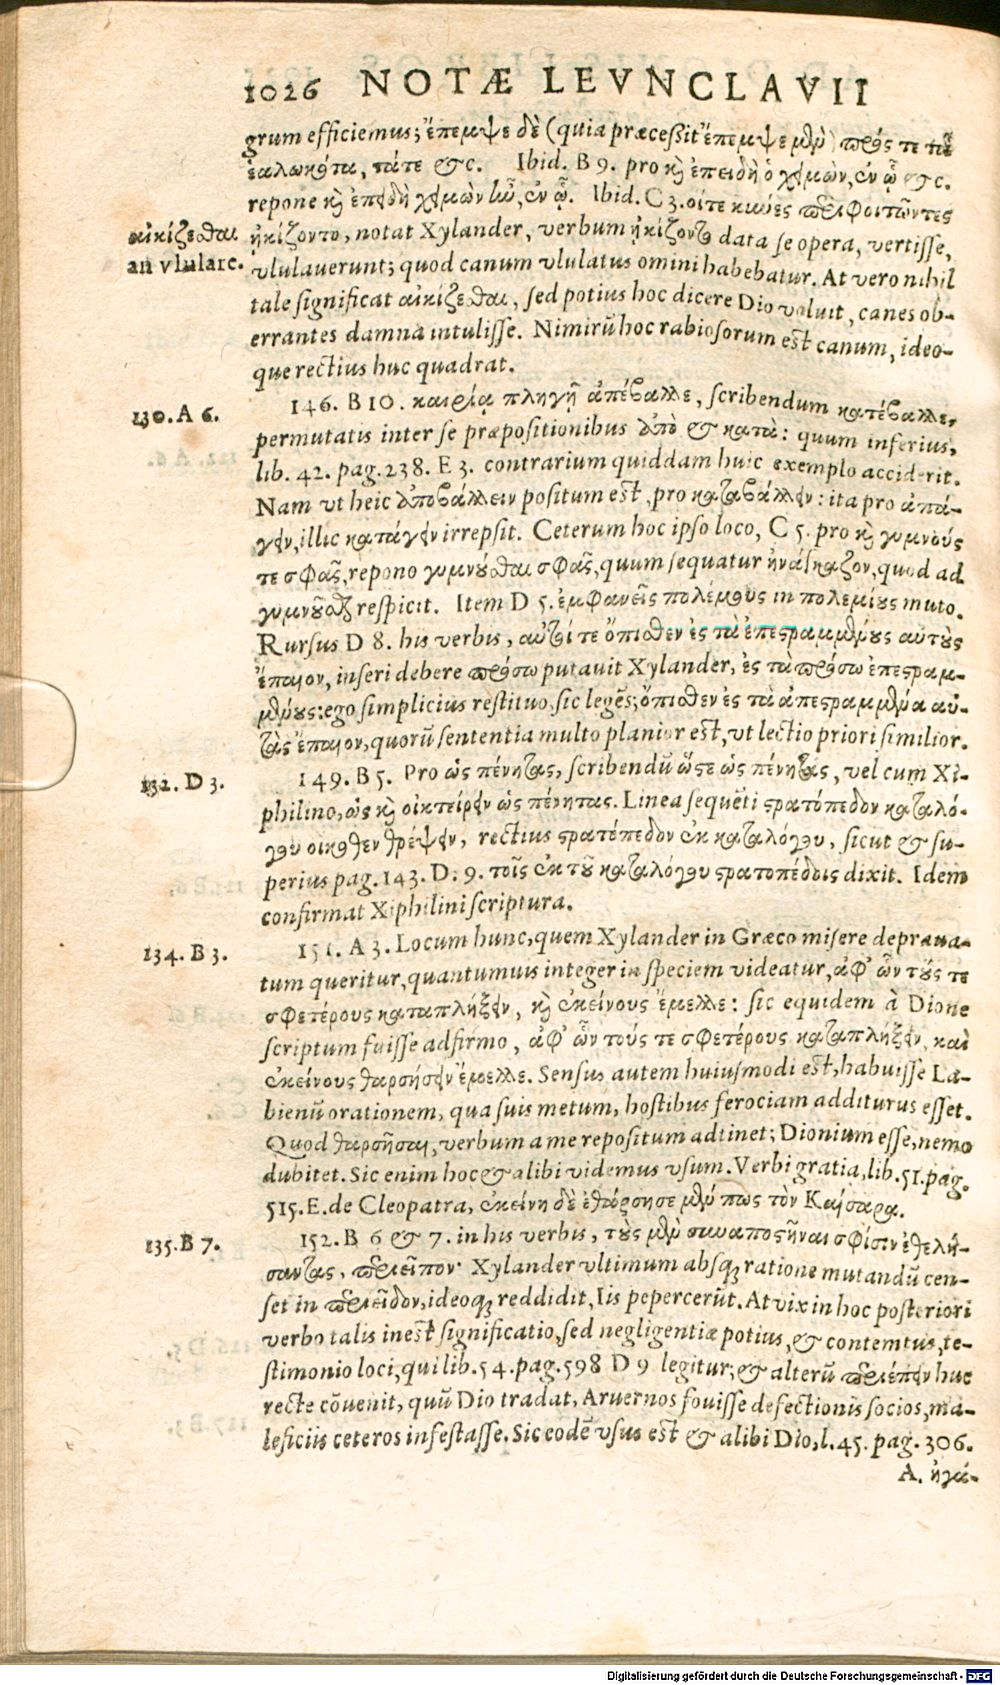 1026 NOTÆ LEVNCLAVII
grum efficiemus; ἔπεμψε δὲ (quia præceßit ἔπεμψε μὲν) πρός τε τὰ
ἑαλωκότα, τάτε &c. Ibid. B 9. pro καὶ ἐπειδὴ ὁ χειμὼν, ἐν ᾧ &c.
repone καὶ ἐπειδὴ χειμὼν ἦν, ἐν ᾧ. Ibid. C 3. οἵτε κύνες περιφοιτῶντες
αἰκίζεσθαι
an vlulare.
ᾐκίζοντο, notat Xylander, verbum ᾐκίζοντο data se opera, vertisse,
vlulauerunt; quod canum vlulatus omini habebatur. At vero nihil
tale significat αἰκίζεσθαι, sed potius hoc dicere Dio voluit, canes ob-
errantes damna intulisse. Nimirũ hoc rabiosorum est canum, ideo-
que rectius huc quadrat.
130. A 6.
146. B 10. καιρίᾳ πληγῇ ἀπέβαλλε, scribendum κατέβαλλε,
permutatis inter se præpositionibus ἀπὸ & κατὰ: quum inferius,
lib. 42. pag. 238. E 3. contrarium quiddam huic exemplo acciderit.
Nam vt heic ἀποβάλλειν positum est, pro καταβάλλειν: ita pro ἀπά-
γειν, illic κατάγειν irrepsit. Ceterum hoc ipso loco, C 5. pro καὶ γυμνούς
τε σφᾶς, repono γυμνοῦσθαι σφᾶς, quum sequatur ἠνάγκαζον, quod ad
γυμνοῦσθαι respicit. Item D 5. ἐμφανεῖς πολέμους in πολεμίους muto.
Rursus D 8. his verbis, αὐτοί τε ὄπισθεν ἐς τὰ ἐπεστραμμένους αὐτοὺς
ἔπαιον, inseri debere πρόσω putauit Xylander, ἐς τὰ πρόσω ἐπεστραμ-
μένους: ego simplicius restituo, sic legẽs; ὄπισθεν ἐς τὰ ἀπεστραμμένα αὐ-
τοὺς ἔπαιον, quorũ sententia multo planior est, vt lectio priori similior.
132. D 3.
149. B 5. Pro ὡς πένητας, scribendũ ὥστε ὡς πένητας, vel cum Xi-
philino, ὡς καὶ οἰκτείρειν ὡς πένητας. Linea sequẽti στρατόπεδον καταλό-
γου οἴκοθεν θρέψειν, rectius στρατόπεδον ἐκ καταλόγου, sicut & su-
perius pag. 143. D. 9. τοῖς ἐκ τοῦ καταλόγου στρατοπέδοις dixit. Idem
confirmat Xiphilini scriptura.
134. B 3.
151. A 3. Locum hunc, quem Xylander in Græco misere depraua-
tum queritur, quantumuis integer in speciem videatur, ἀφ᾽ ὧν τούς τε
σφετέρους καταπλήξειν, καὶ ἐκείνους ἔμελλε: sic equidem à Dione
scriptum fuisse adfirmo, ἀφ᾽ ὧν τούς τε σφετέρους καταπλήξειν, καὶ
ἐκείνους θαρσήσειν ἔμελλε. Sensus autem huiusmodi est, habuisse La-
bienũ orationem, qua suis metum, hostibus ferociam additurus esset.
Quod θαρσῆσαι, verbum a me repositum adtinet; Dionium esse, nemo
dubitet. Sic enim hoc & alibi videmus vsum. Verbi gratia, lib. 51. pag.
515. E. de Cleopatra, ἐκείνη δὲ ἐθάρσησε μέν πως τὸν Καίσαρα.
135. B 7.
152. B 6 & 7. in his verbis, τοὺς μὲν συναποστῆναι σφίσιν ἐθελή-
σαντας, περιεῖπον· Xylander vltimum absq; ratione mutandũ cen-
set in περιεῖδον, ideoq; reddidit, Iis pepercerũt. At vix in hoc posteriori
verbo talis inest significatio, sed negligentiæ potius, & contemtus, te-
stimonio loci, qui lib. 54. pag. 598 D 9 legitur; & alterũ περιέπειν huc
recte cõuenit, quũ Dio tradat, Aruernos fouisse defectionis socios, ma-
leficiis ceteros infestasse. Sic eodẽ vsus est & alibi Dio, l. 45. pag. 306.
A. ἠγά-
Digitalisierung gefördert durch die Deutsche Forschungsgemeinschaft - DFG